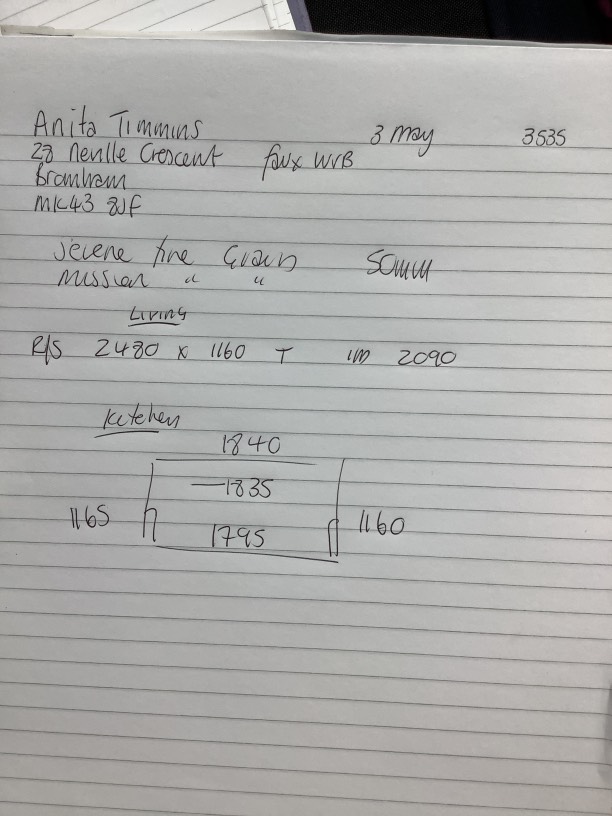 Anita Timmins 3 May 3535
28 Neville Crescent faux WVB
Bromham
MK43 8JF
Serene fine Grain 50mm
Mission " "
Living
R/S 2480 x 1160 T 1M 2090
Kitchen
1840
1835
1165 1795 1160